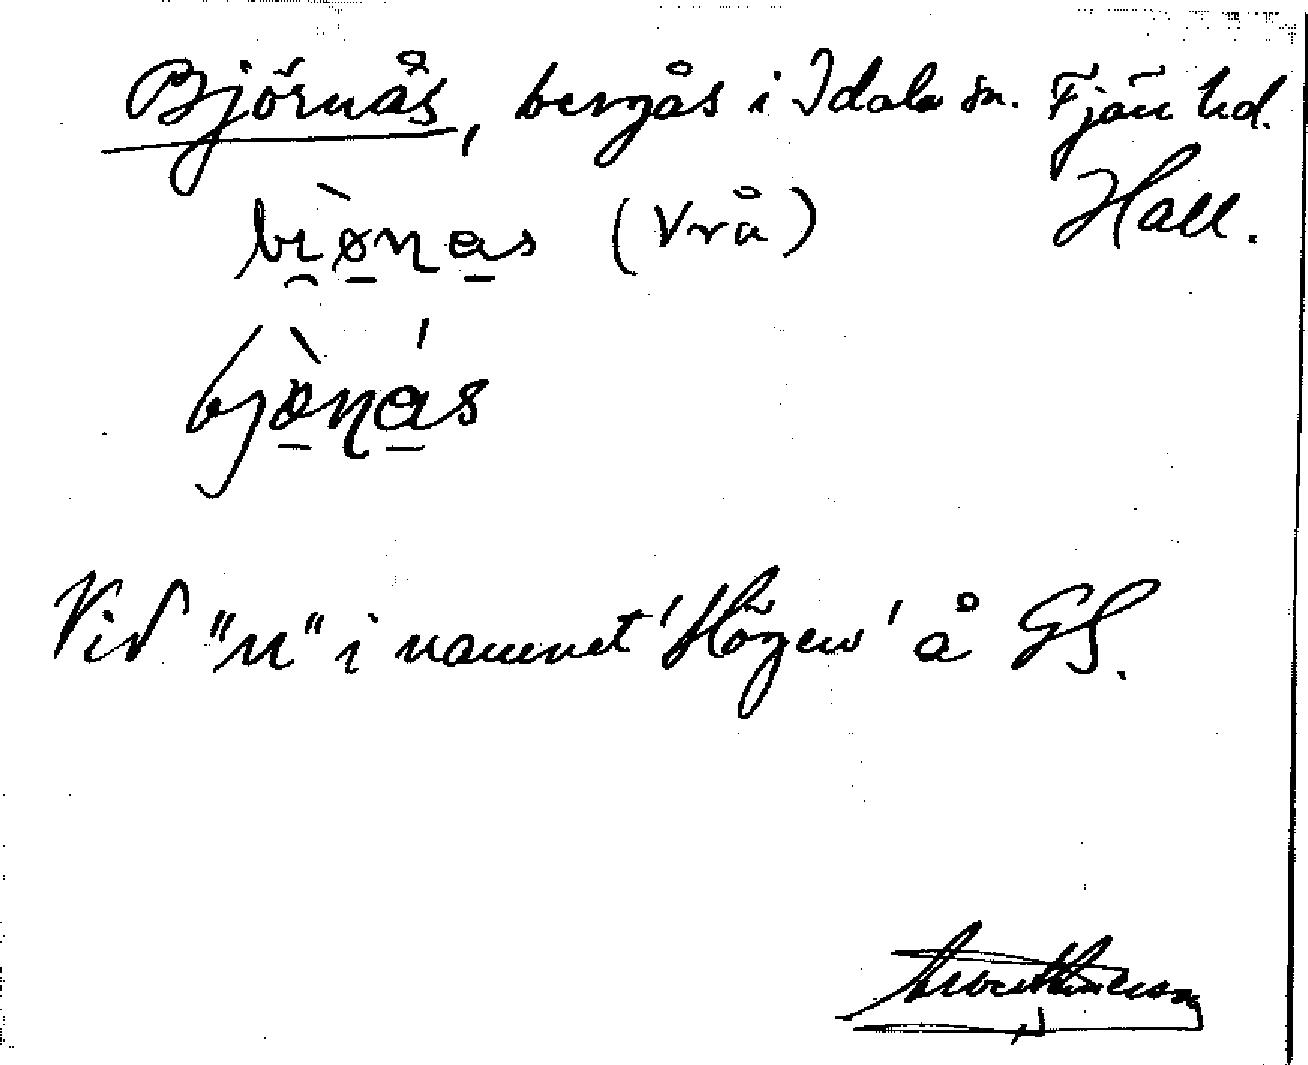 Björnås, bergås i Idala sn. Fjäre hd.
Hall.
bi̯ø̀nas (Vrå)
bjø̀nás
Vid "n" i namnet 'Högen' å GS.